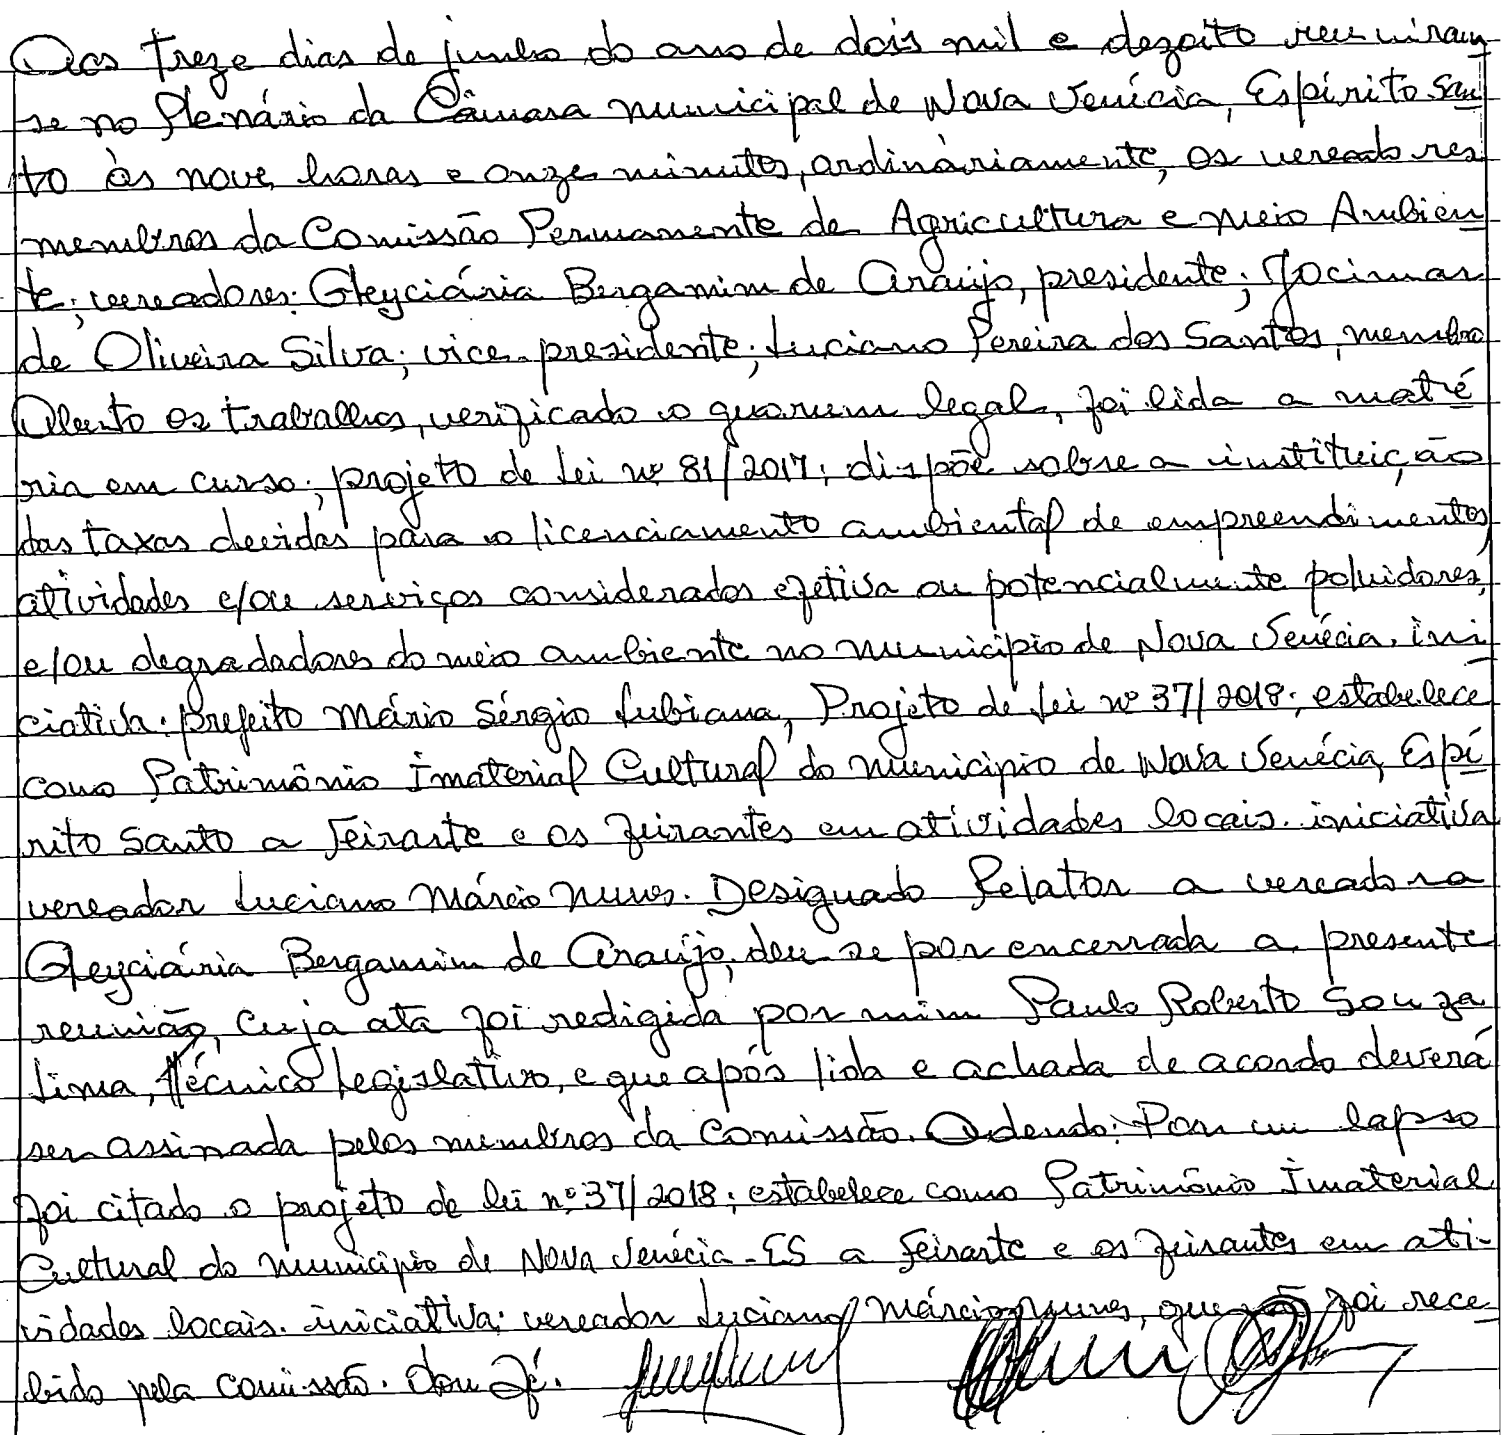 Aos treze dias de junho do ano de dois mil e dezoito reuniram
se no Plenário da Câmara municipal de Nova Venécia, Espírito San
to às nove horas e onze minutos, ordináriamente, os vereadores
membros da Comissão Permanente de Agricultura e meio Ambien
te; vereadores: Gleyciária Bergamim de Araújo, presidente; Jocimar
de Oliveira Silva; vice-presidente; Luciano Pereira dos Santos, membro
Aberto os trabalhos, verificado o quorum legal, foi lida a maté
ria em curso; projeto de Lei nº 81/2017; dispõe sobre a instituição
das taxas devidas para o licenciamento ambiental de empreendimentos,
atividades e/ou serviços considerados efetiva ou potencialmente poluidores,
e/ou degradadores do meio ambiente no município de Nova Venécia. ini
ciativa: prefeito Mário Sérgio Lubiana, Projeto de Lei nº 37/2018; estabelece
como Patrimônio Imaterial Cultural do município de Nova Venécia, Espí
rito Santo a Feirarte e os feirantes em atividades locais. iniciativa
vereador Luciano Márcio Nunes. Designado Relator a vereadora
Gleyciária Bergamim de Araújo, deu se por encerrada a presente
reunião, cuja ata foi redigida por mim Paulo Roberto Souza
Lima, técnico Legislativo, e que após lida e achada de acordo deverá
ser assinada pelos membros da Comissão. Adendo: Por um lapso
foi citado o projeto de lei nº 37/2018; estabelece como Patrimônio Imaterial
Cultural do município de Nova Venécia-ES a Feirarte e os feirantes em ati-
vidades locais. iniciativa: vereador Luciano Márcio Nunes, que não foi rece
bido pela comissão. Dou Fé.